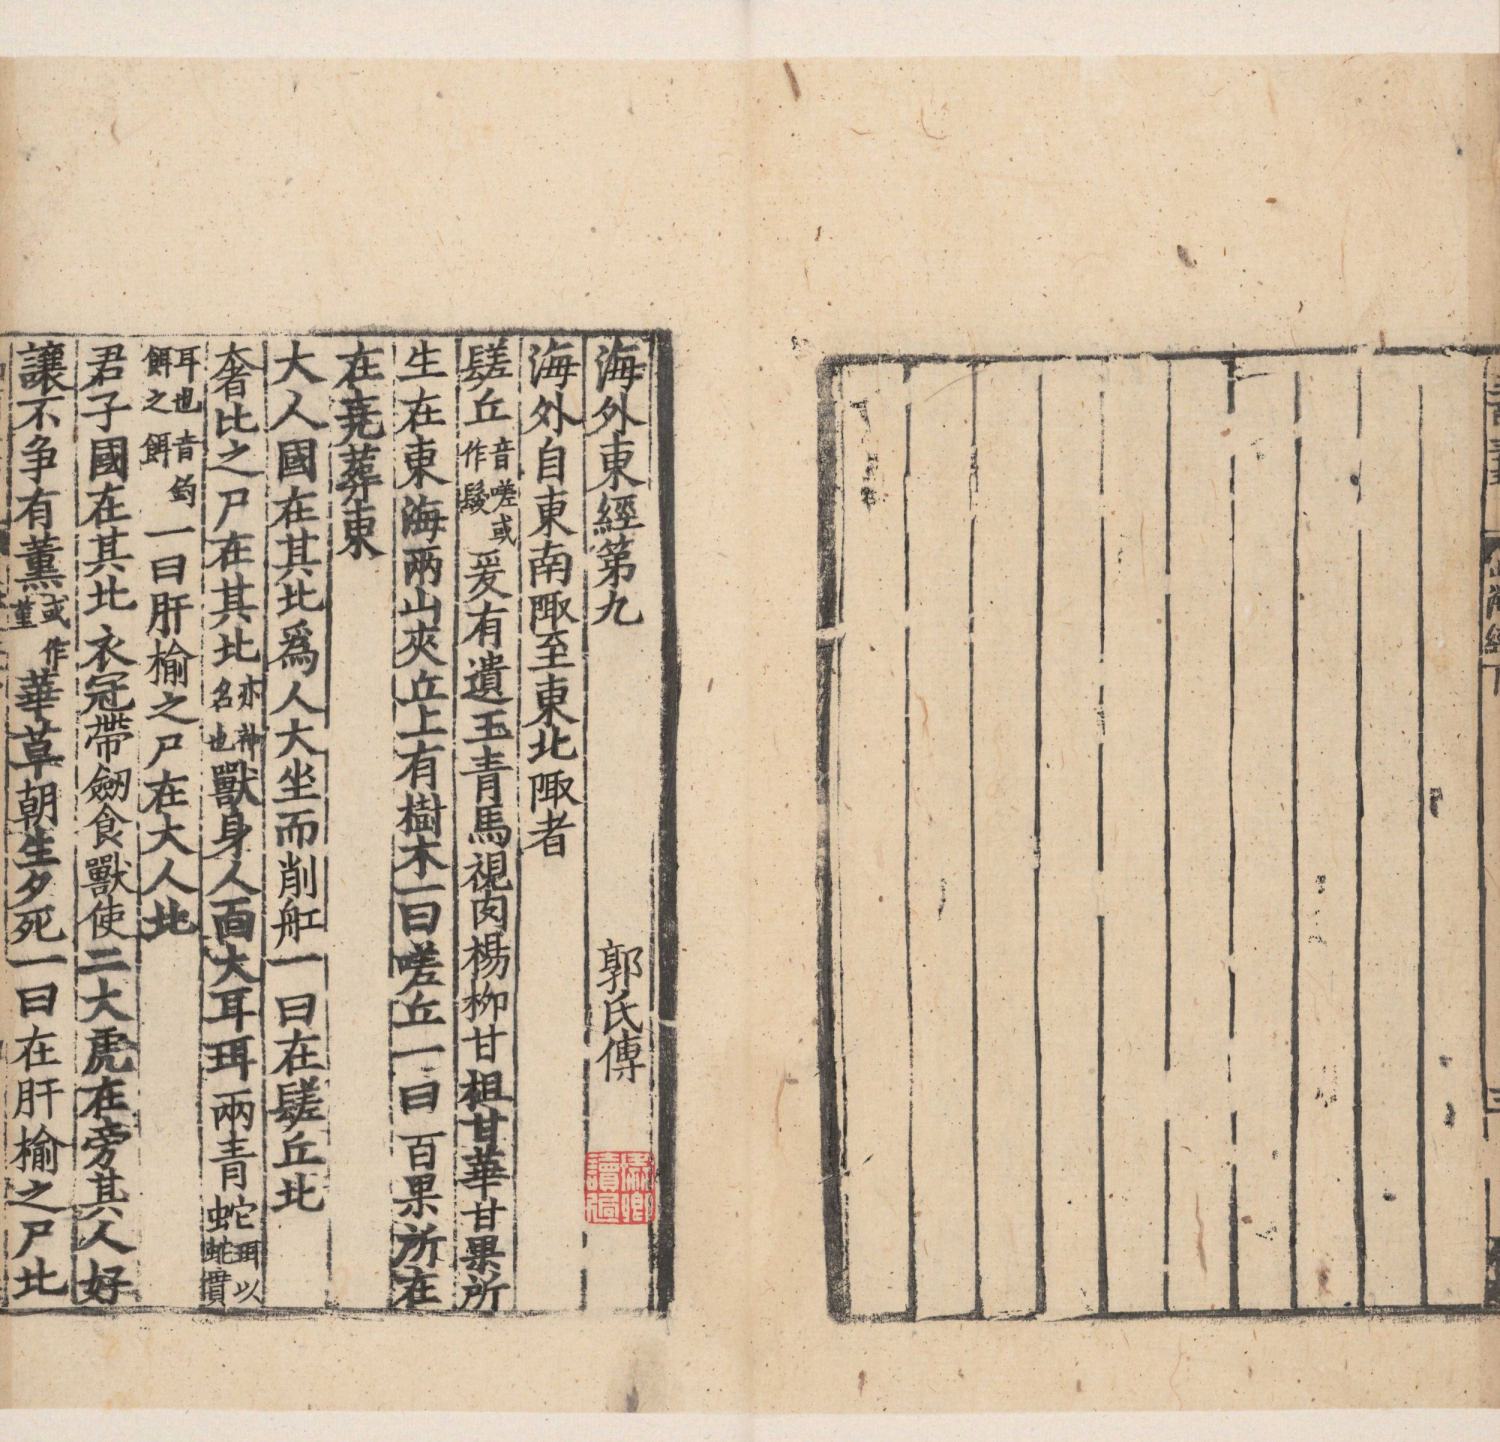 海外東經第九 郭氏傳
海外自東南陬至東北陬者
䰈丘音嗟或作髮爰有遺玉青馬視肉楊柳甘柤甘華甘果所
生在東海兩山夾丘上有樹木一曰嗟丘一曰百果所在
在堯葬東
大人國在其北爲人大坐而削舡一曰在䰈丘北
奢比之尸在其北亦神名也獸身人面大耳珥兩青蛇珥以蛇貫
耳也音釣餌之餌一曰肝榆之尸在大人北
君子國在其北衣冠帶劒食獸使二大虎在旁其人好
讓不争有薰或作堇華草朝生夕死一曰在肝榆之尸北